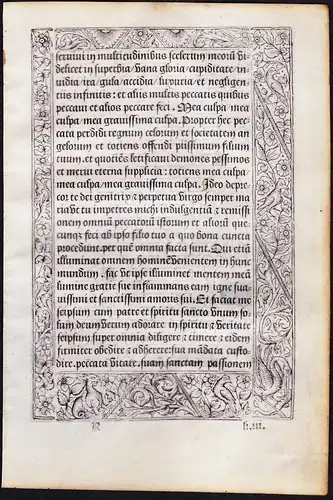 seruiui in multitudinibus scelerum meorũ vi
delicet in superbia/vana gloria/cupiditate in
uidia/ira/gula/accidia/luxuria/et negligen
tiis infinitis: et aliis multis peccatis quibus
peccaui et alios peccare feci. Mea culpa/mea
culpa/mea grauissima culpa. Propter hec pec
cata perdidi regnum celorum et societatem an
gelorum et totiens offendi piissimum filium
tuum. et quotiẽs letificaui demones pessimos
et merui eterna supplicia: totiens mea culpa
mea culpa/mea grauissima culpa. Ideo depre
cor te dei genitrix & perpetua virgo semper ma
ria vt tu impetres michi indulgentiã & remissi
onem omniũ peccatorũ istorum et aliorũ que
cunqꝫ feci ab ipso filio tuo a quo bona cuncta
procedunt. per quẽ omnia facta sunt. Qui etiã
illuminat omnem hominẽ venientem in hunc
mundum. fac vt ipse illuminet mentem meã
lumine gratie sue inflammans eam igne sua
uissimi et sanctissimi amoris sui. Et faciat me
seipsum cum patre et spiritu sancto vnum so
lum deum verum adorare in spiritu & veritate
seipsum super omnia diligere & timere & eidem
firmiter obedire & adherere: sua mãdata custo
dire. peccata vitare. suam sanctam passionem
h.iii.